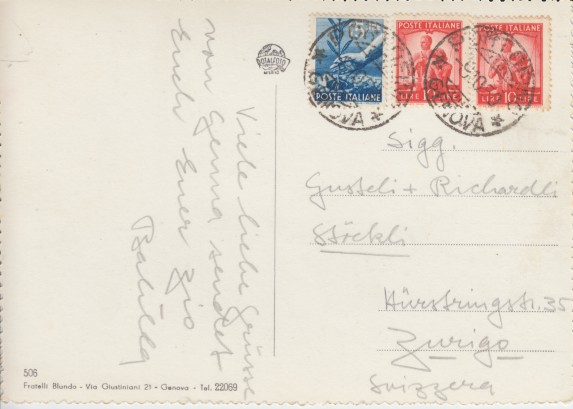 ROTALFOTO
MILANO
POSTE ITALIANE
POSTE ITALIANE
POSTE ITALIANE
LIRE 10 LIRE
GENOVA
GENOVA
Viele liebe Grüsse
von Genua sendet
Euch Euer Zio
Sigg.
Gusteli + Richardli
Stöckli
Hürstringstr. 35
Zurigo
Svizzera
506
Fratelli Blundo - Via Giustiniani 21 - Genova - Tel. 22069